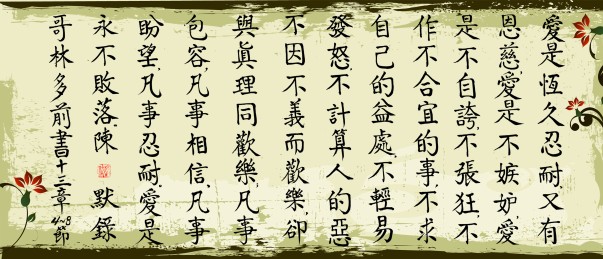 愛是恆久忍耐又有
恩慈,愛是不嫉妒,愛
是不自誇,不張狂,不
作不合宜的事,不求
自己的益處,不輕易
發怒,不計算人的惡
不因不義而歡樂卻
與真理同歡樂,凡事
包容,凡事相信,凡事
盼望,凡事忍耐,愛是
永不敗落,陳默錄
哥林多前書十三章4~8節